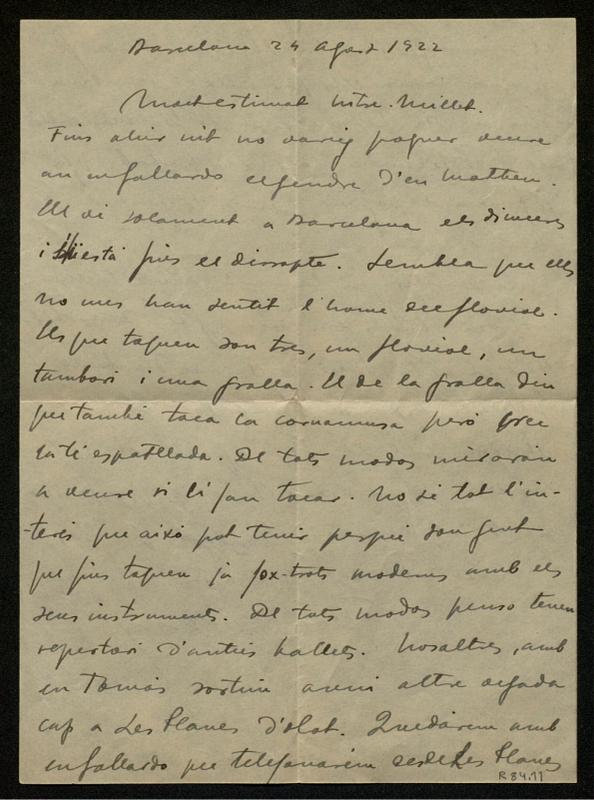 Barcelona 24 Agost 1922
Molt estimat Mtre. Millet.
Fins ahir nit no varig poguer veure
an en Gallardo el gendre d'en Matheu.
Ell vé solament a Barcelona els dimecres
i está fins el dissapte. Sembla que ells
no mes han sentit l'home del floviol.
Els que toquen son tres, un floviol, un
tambori i una gralla. El de la gralla diu
que també toca la cornamusa peró que
la té espatllada. De tots modos miraran
a veure si li fan tocar. No sé tot l'in-
-terés que aixó pot tenir perque son gent
que fins toquen ja fox-trots moderns amb els
seus instruments. De tots modos penso tenen
repertori d'antics ballets. Nosaltres, amb
en Tomás sortim avui altre vegada
cap a Les Planes d'Olot. Quedárem amb
en Gallardo que telefonarém desde Les Planes
R 84.11